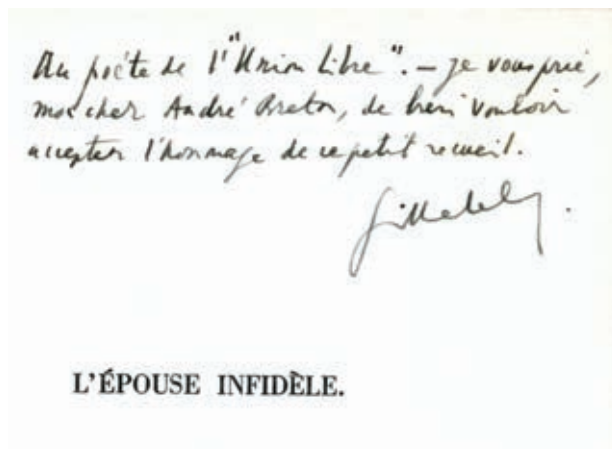 Au poète de l'"Union Libre". — je vous prie,
mon cher André Breton, de bien vouloir
accepter l'hommage de ce petit recueil.
L'ÉPOUSE INFIDÈLE.